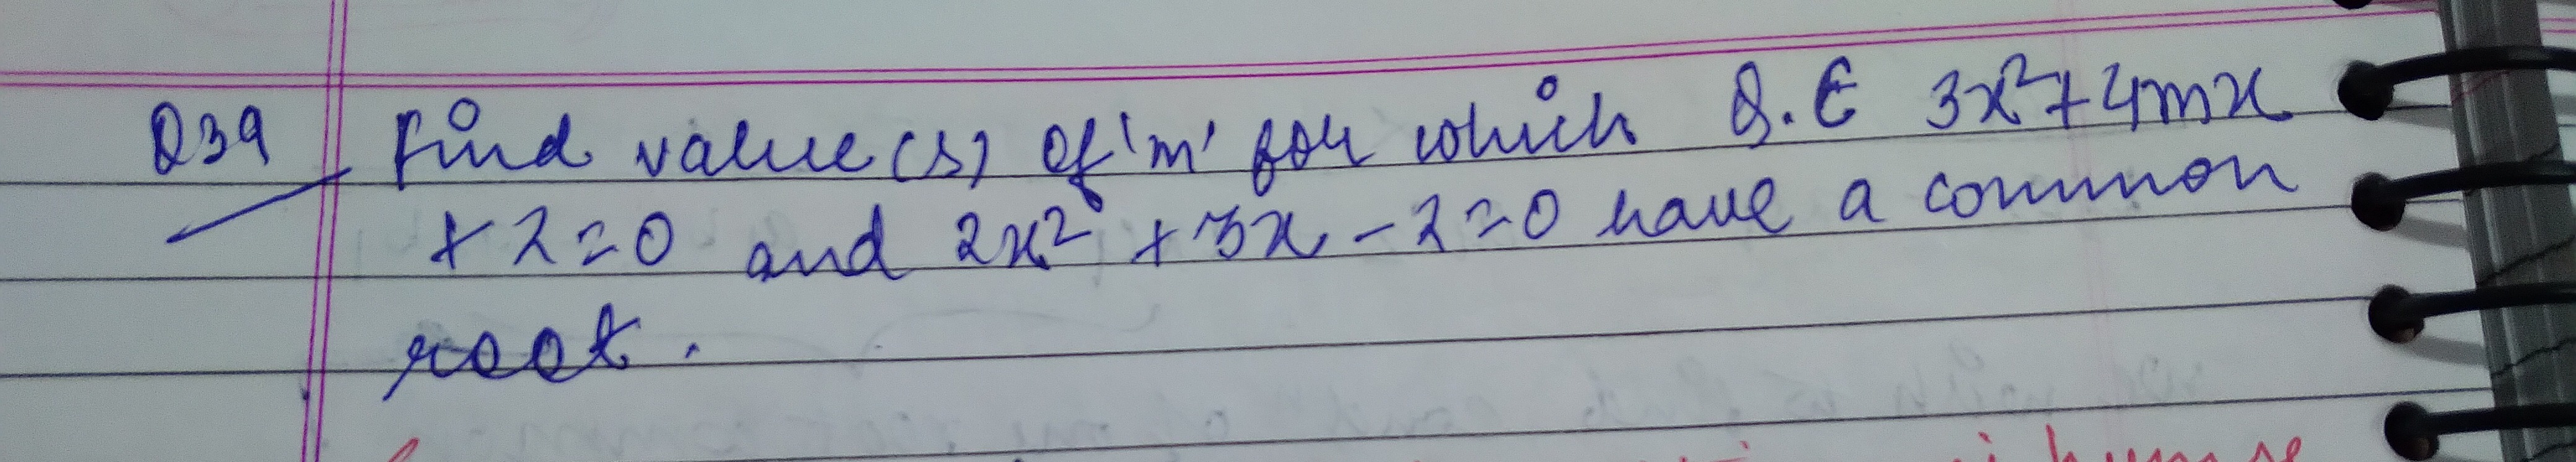 Q39 Find value(s) of 'm' for which Q.E 3x²+4mx
+2=0 and 2x²+3x-2=0 have a common
root.